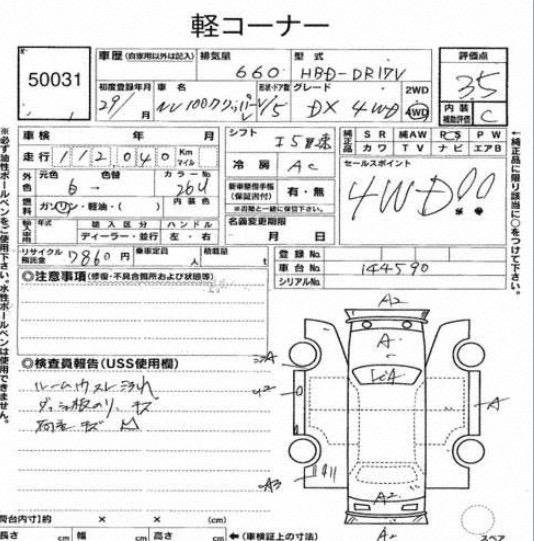 軽コーナー
50031
車歴 (自家用以外は記入)
排気量
型式
660
HBD-DR17V
評価点
3.5
内装
補助評価
C
初度登録年月
車名
形状・ドア数
グレード
2WD
4WD
29/
月
NV100クリッパー
V/5
DX 4WD
車検
年
月
走行
112,040
Km
マイル
外色
元色
色替
カラーNo.
内装色
26U
燃料
ガソリン・軽油・( )
輸入車用
年式
輸入区分
ハンドル
ディーラー・並行
左・右
リサイクル預託金
7860円
乗車定員
人
積載量
t
シフト
冷房
AC
新車整備手帳
(保証書付)
有・無
※書類と一緒に保管下さい。
名義変更期限
月
日
純正品
SR
純AW
PS
PW
カワ
TV
ナビ
エアB
セールスポイント
4WD!!
登録No.
車台No.
144590
シリアルNo.
◎注意事項 (修復・不具合箇所および状態等)
◎検査員報告(USS使用欄)
ルームウスレ 汚れ
ダッシュ板のり、キズ
荷台キズ 凹
A2
A
A
A
A3
A2
A2
荷台内寸)約
×
×
(cm)
長さ
cm
幅
cm
高さ
cm
←(車検証上の寸法)
スペア
※必ず油性ボールペンをご使用下さい。水性ボールペンは使用できません。
←純正品に限り該当に○をつけて下さい。